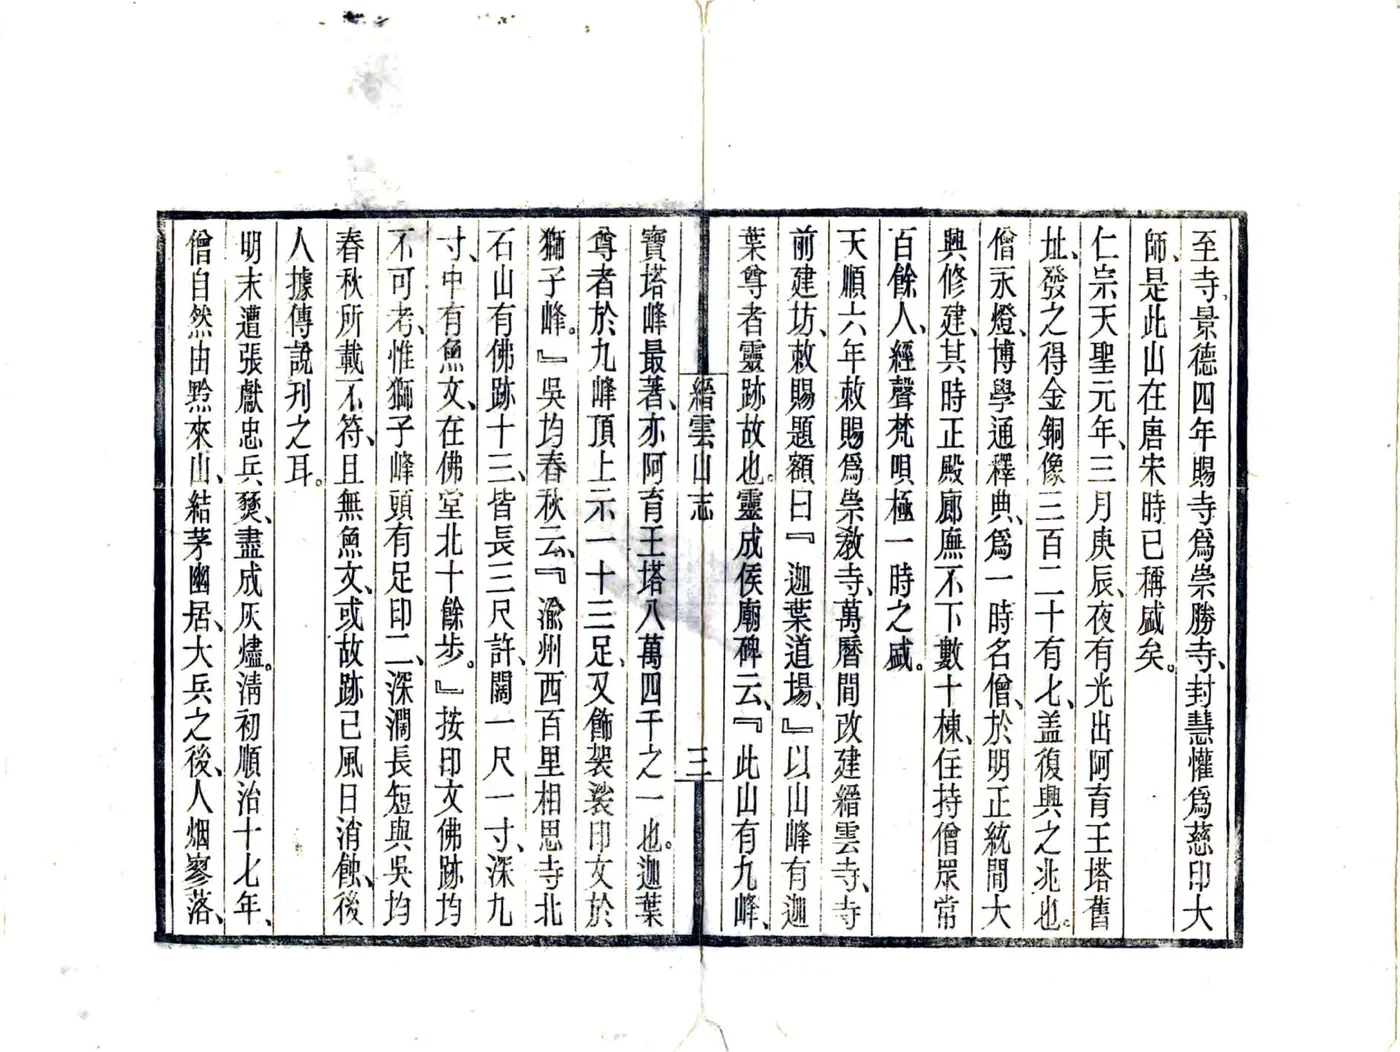 至寺景德四年賜寺爲崇勝寺、封慧懽爲慈印大
師、是此山在唐宋時已稱盛矣。
仁宗天聖元年、三月庚辰、夜有光出阿育王塔舊
址、發之得金銅像三百二十有七、盖復興之兆也。
僧永燈、博學通釋典、爲一時名僧、於明正統間大
興修建、其時正殿廊廡不下數十棟、住持僧眾常
百餘人、經聲梵唄極一時之盛。
天順六年敕賜爲崇敎寺、萬曆間改建縉雲寺、寺
前建坊、敕賜題額曰『迦葉道場、』以山峰有迦
葉尊者靈跡故也。靈成侯廟碑云、『此山有九峰、
縉雲山志
三
寶塔峰最著、亦阿育王塔八萬四千之一也。迦葉
尊者於九峰頂上示一十三足、又飾袈裟印文於
獅子峰。』吳均春秋云、『渝州西百里相思寺北
石山有佛跡十三、皆長三尺許、闊一尺一寸、深九
寸、中有魚文、在佛堂北十餘步。』按印文佛跡均
不可考、惟獅子峰頭有足印二、深濶長短與吳均
春秋所載不符、且無魚文、或故跡已風日消蝕、後
人據傳說刋之耳。
明末遭張獻忠兵燹、盡成灰燼。淸初順治十七年、
僧自然由黔來山、結茅幽居、大兵之後、人烟寥落、